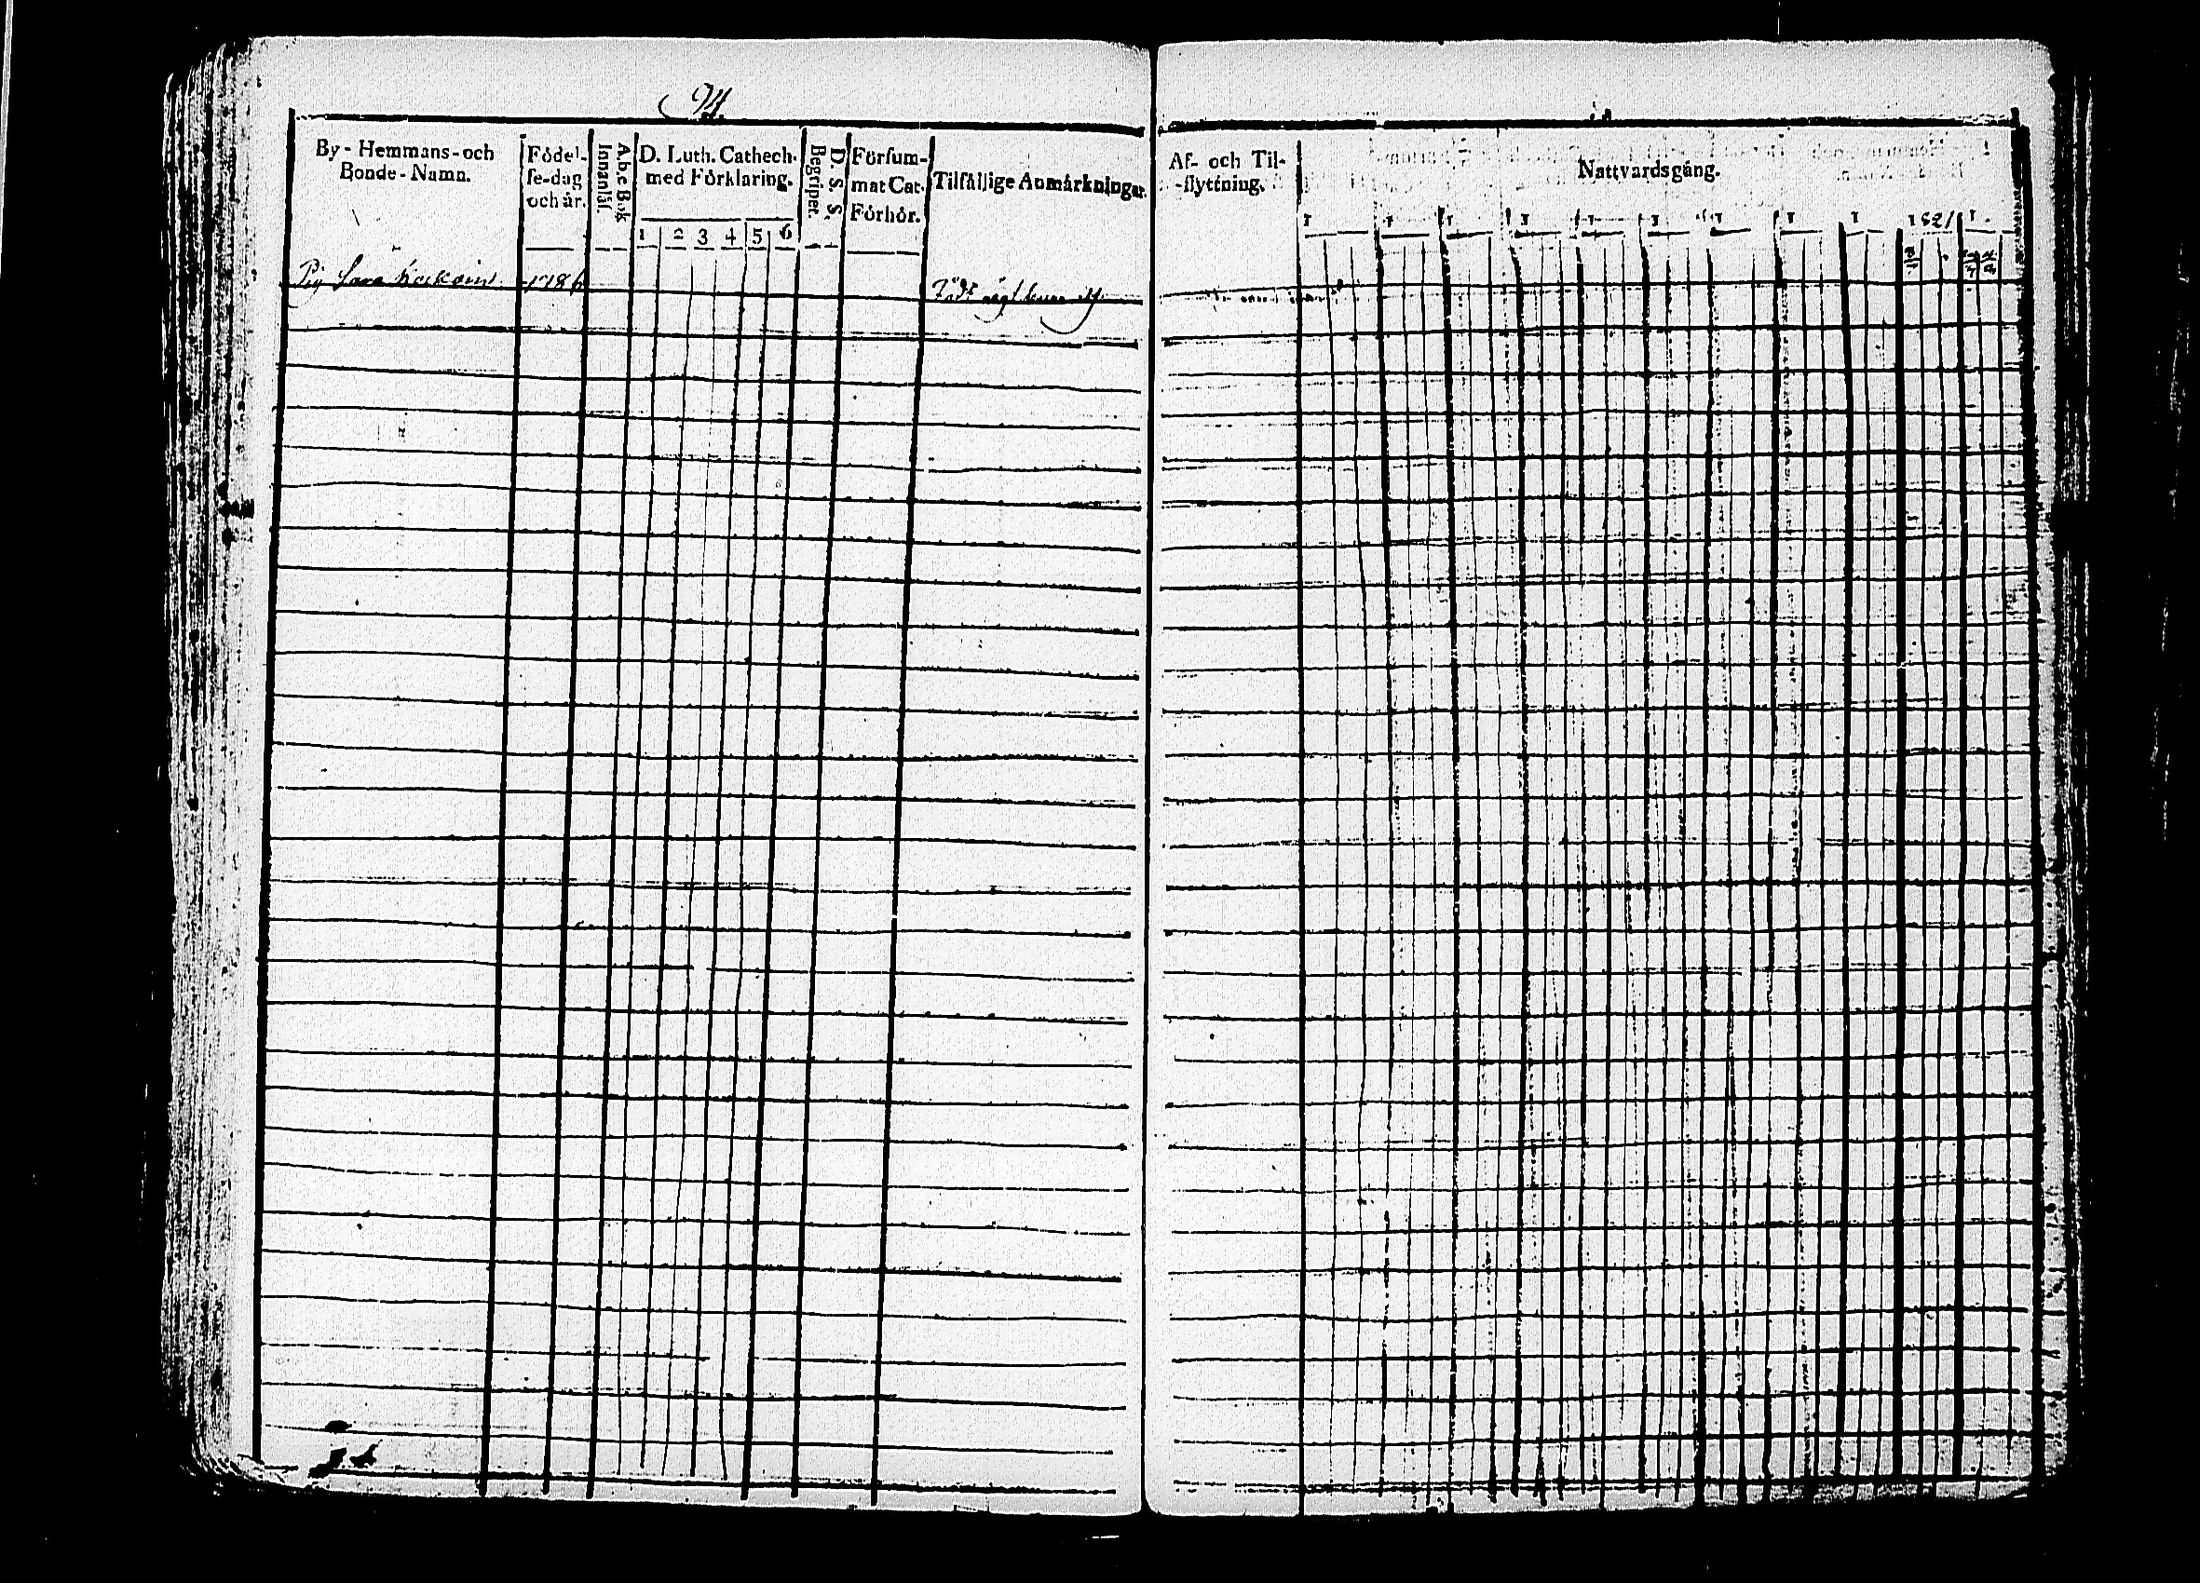 By - Hemmans - och
Bonde - Namn.
Födel-
se-dag
och år.
A.b.c Bok
Innanläs.
D. Luth. Cathech.
med Förklaring.
1 2 3 4 5 6
D. S. S.
Begriper.
Försum-
mat Cat.
Förhör.
Tilfällige Anmärkningar.
Pig Sara 1786
Af- och Til-
-flyttning.
Nattvardsgång.
1 1 1 1 1 1 1 1 1 1821 1